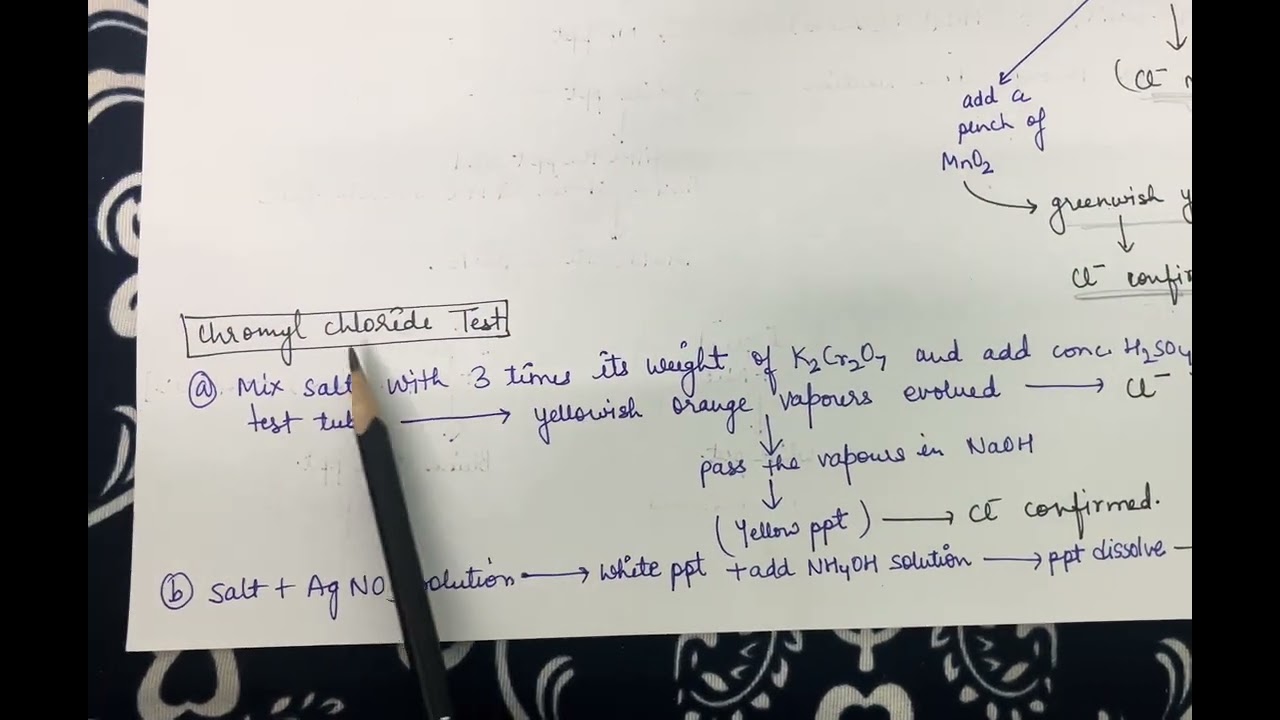 add a
pench of
MnO2
(Cl-
greenwish
Cl-
Chromyl chloride Test
(a) Mix salt with 3 times its weight of K2Cr2O7 and add conc. H2SO4
test yellowish orange vapours evolved Cl-
pass the vapours in NaOH
(Yellow ppt) Cl- confirmed.
(b) Salt + AgNO white ppt + add NH4OH solution ppt dissolve